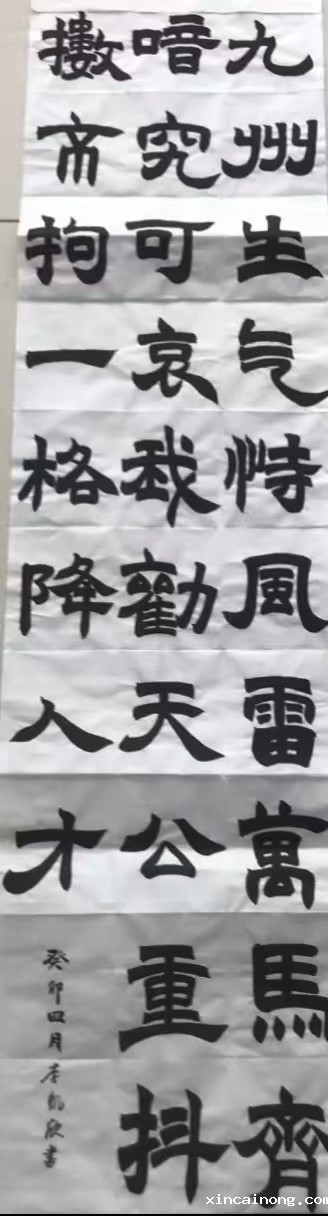 九州生气恃風雷萬馬齊
喑究可哀我勸天公重抖
擻不拘一格降人才
癸卯四月李欣書
xincainong.com